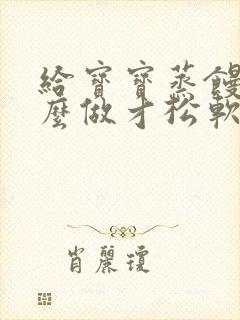 給寶寶蒸饅
麼做才松軟
肖麗瓊